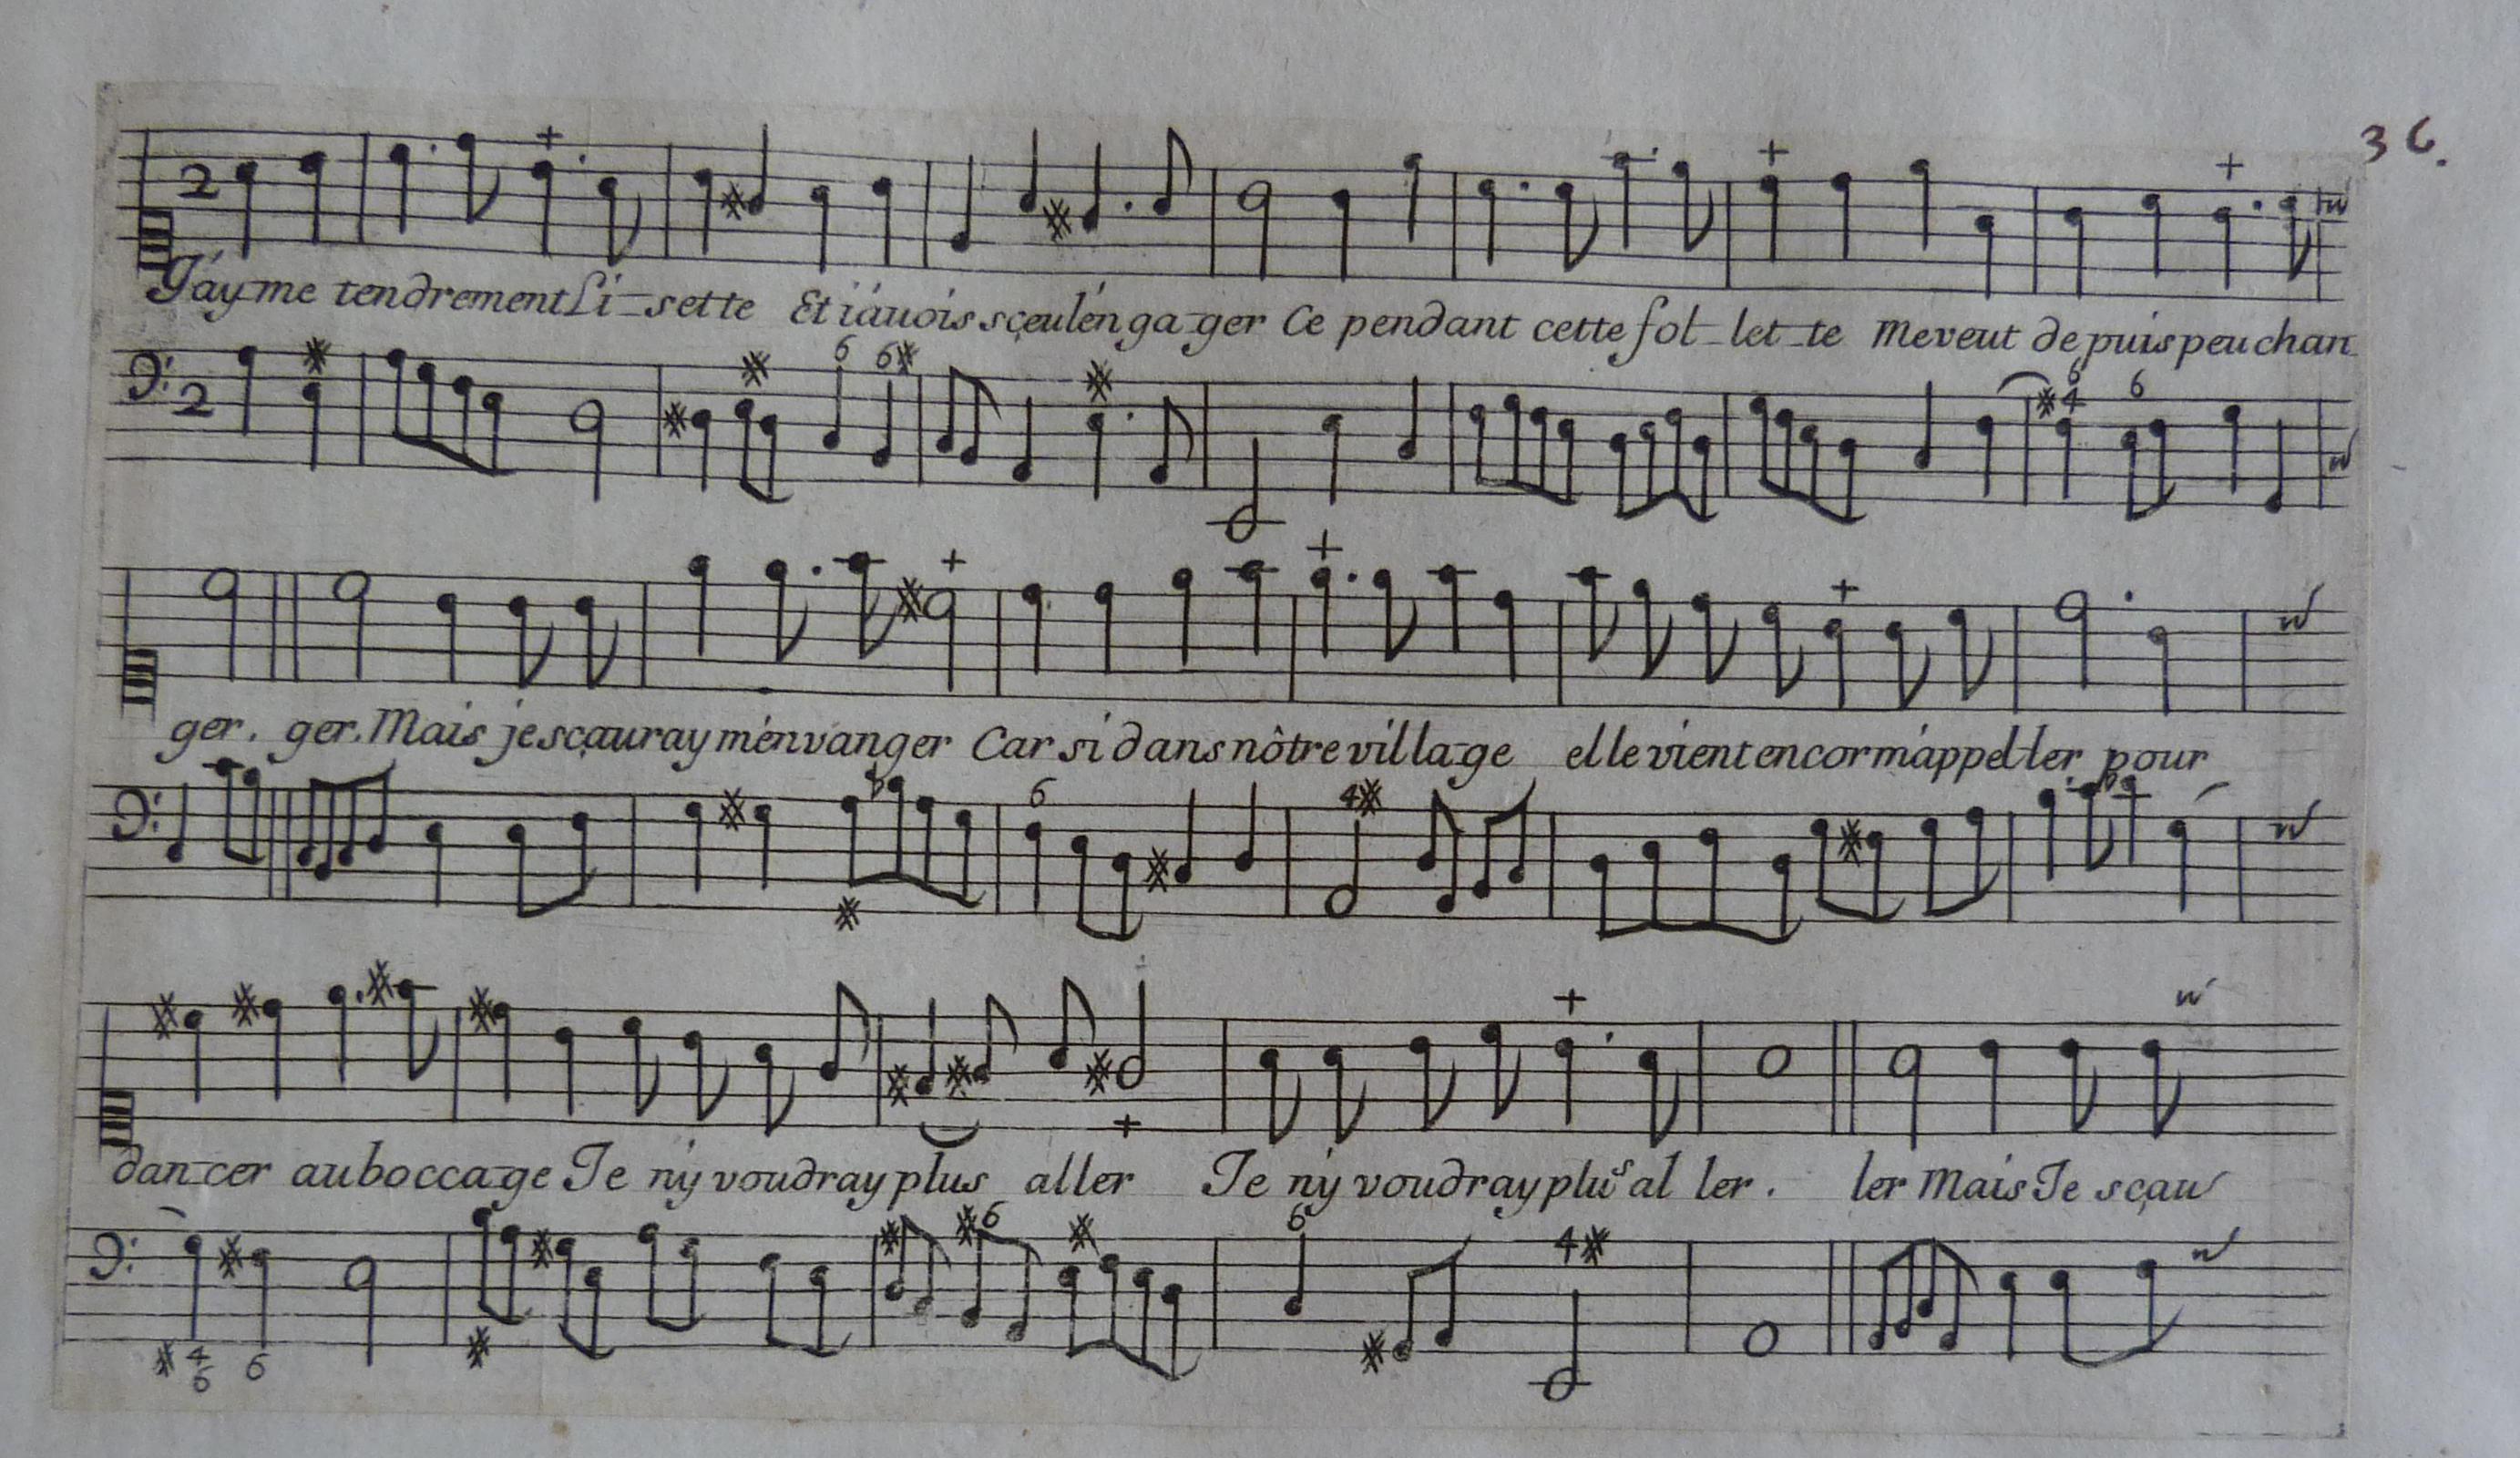 36.
2
J'ay-me tendrement Li-sette Et i'auois sçeu l'en ga-ger Ce pendant cette fol-let-te me veut depuis peu chan
2 6 6 6 4 6
ger. ger. Mais je sçauray m'en vanger Car si dans nôtre villa-ge elle vient encor m'appel-ler pour
6 4
dan-cer au bocca-ge Je n'y voudray plus aller Je n'y voudray plus al ler. ler Mais Je sçau
4 6 6 6 6 4